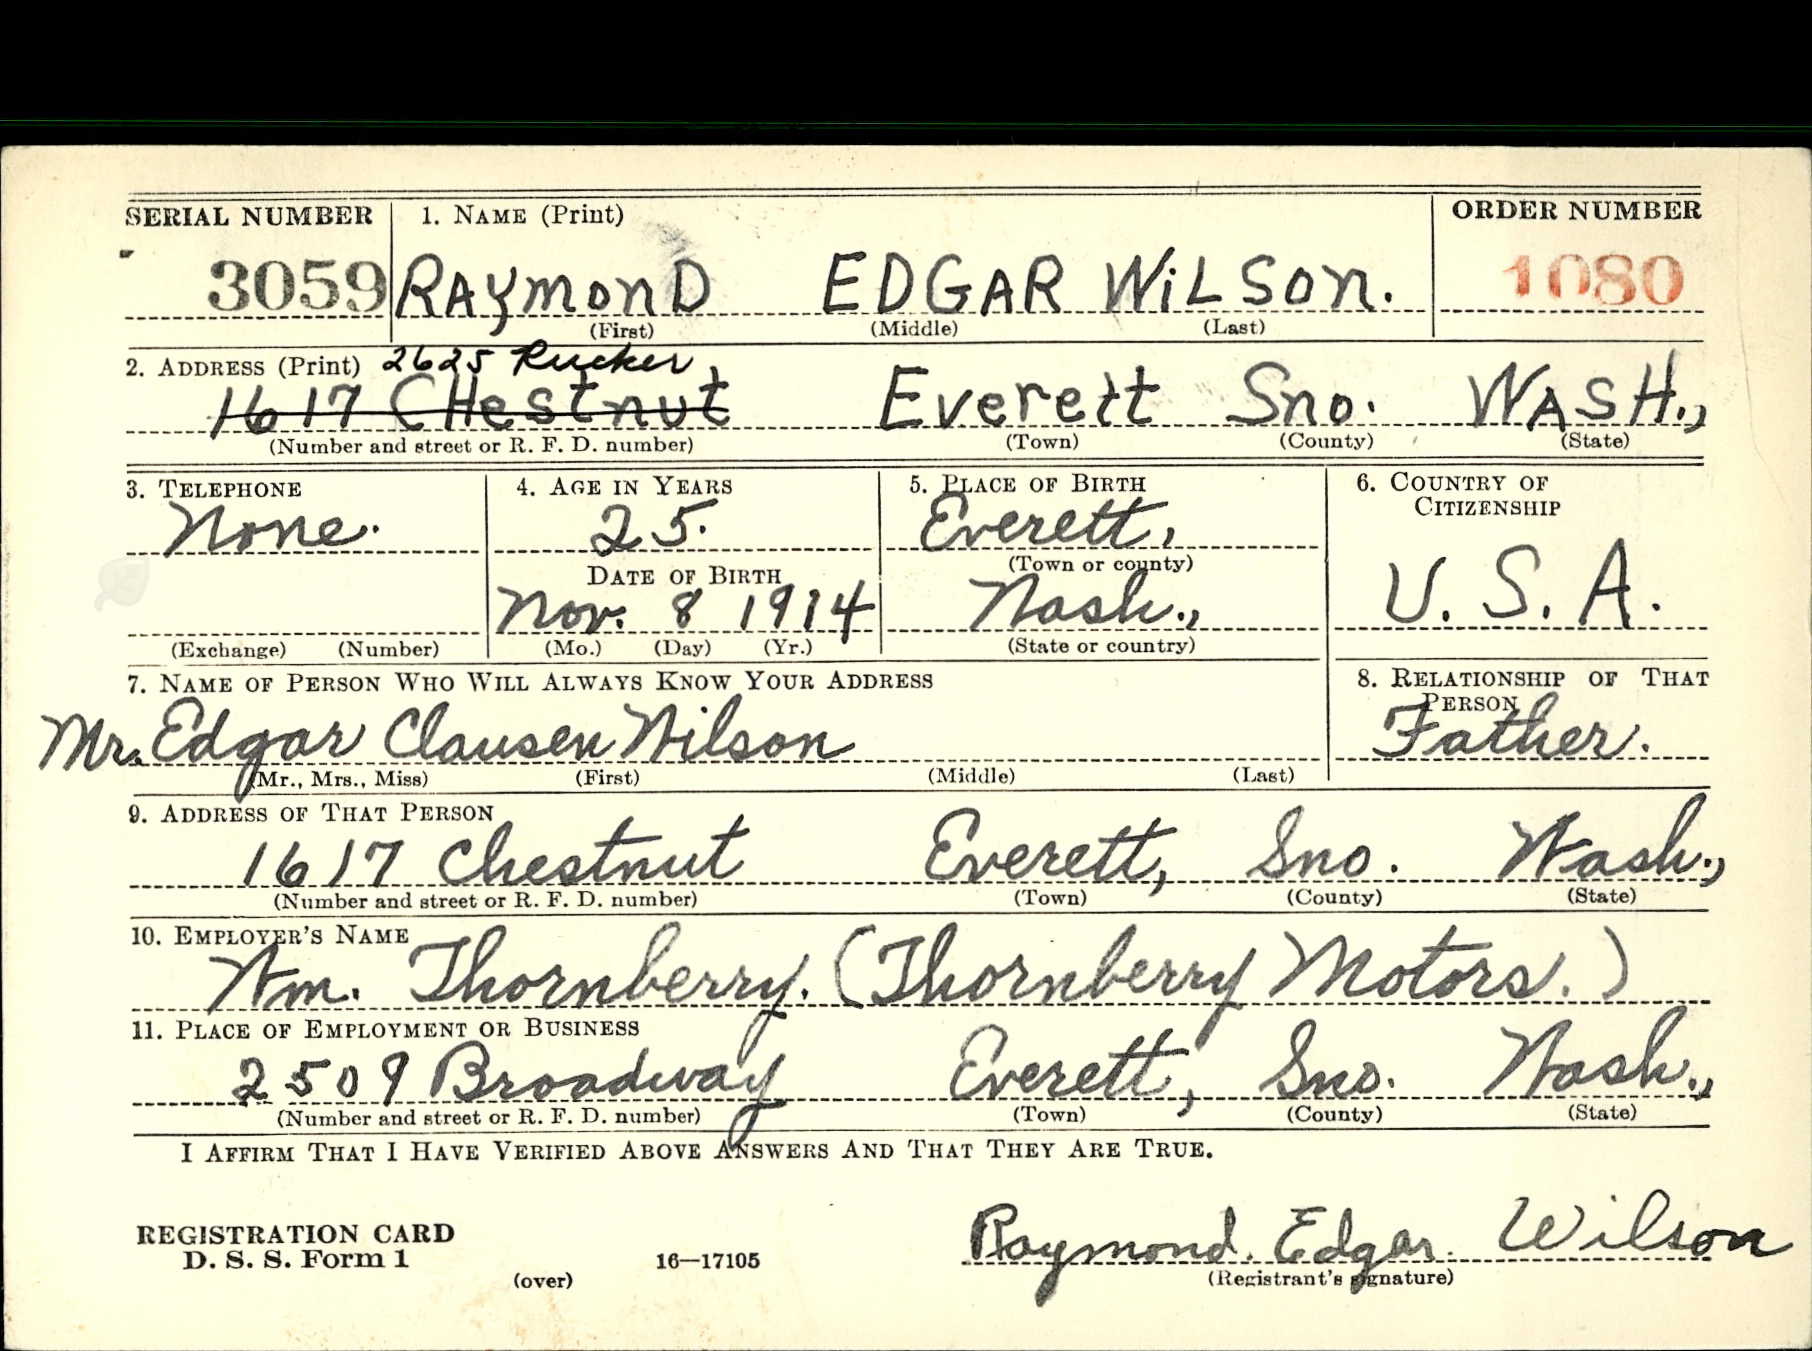 SERIAL NUMBER 1. NAME (Print) ORDER NUMBER
3059 RAYmonD EDGAR WiLSon. 1080
(First) (Middle) (Last)
2. ADDRESS (Print) 2625 Rucker
1617 CHestnut Everett Sno. WASH.,
(Number and street or R. F. D. number) (Town) (County) (State)
3. TELEPHONE 4. AGE IN YEARS 5. PLACE OF BIRTH 6. COUNTRY OF
CITIZENSHIP
None. 25. Everett,
(Town or county)
DATE OF BIRTH
Nov. 8 1914 Wash., U. S. A.
(Exchange) (Number) (Mo.) (Day) (Yr.) (State or country)
7. NAME OF PERSON WHO WILL ALWAYS KNOW YOUR ADDRESS 8. RELATIONSHIP OF THAT
PERSON
Mr. Edgar Clausen Wilson Father.
(Mr., Mrs., Miss) (First) (Middle) (Last)
9. ADDRESS OF THAT PERSON
1617 Chestnut Everett, Sno. Wash.,
(Number and street or R. F. D. number) (Town) (County) (State)
10. EMPLOYER'S NAME
Wm. Thornberry. (Thornberry Motors.)
11. PLACE OF EMPLOYMENT OR BUSINESS
2509 Broadway Everett, Sno. Wash.,
(Number and street or R. F. D. number) (Town) (County) (State)
I AFFIRM THAT I HAVE VERIFIED ABOVE ANSWERS AND THAT THEY ARE TRUE.
REGISTRATION CARD
D. S. S. Form 1 16—17105 Raymond. Edgar. Wilson
(over) (Registrant's signature)